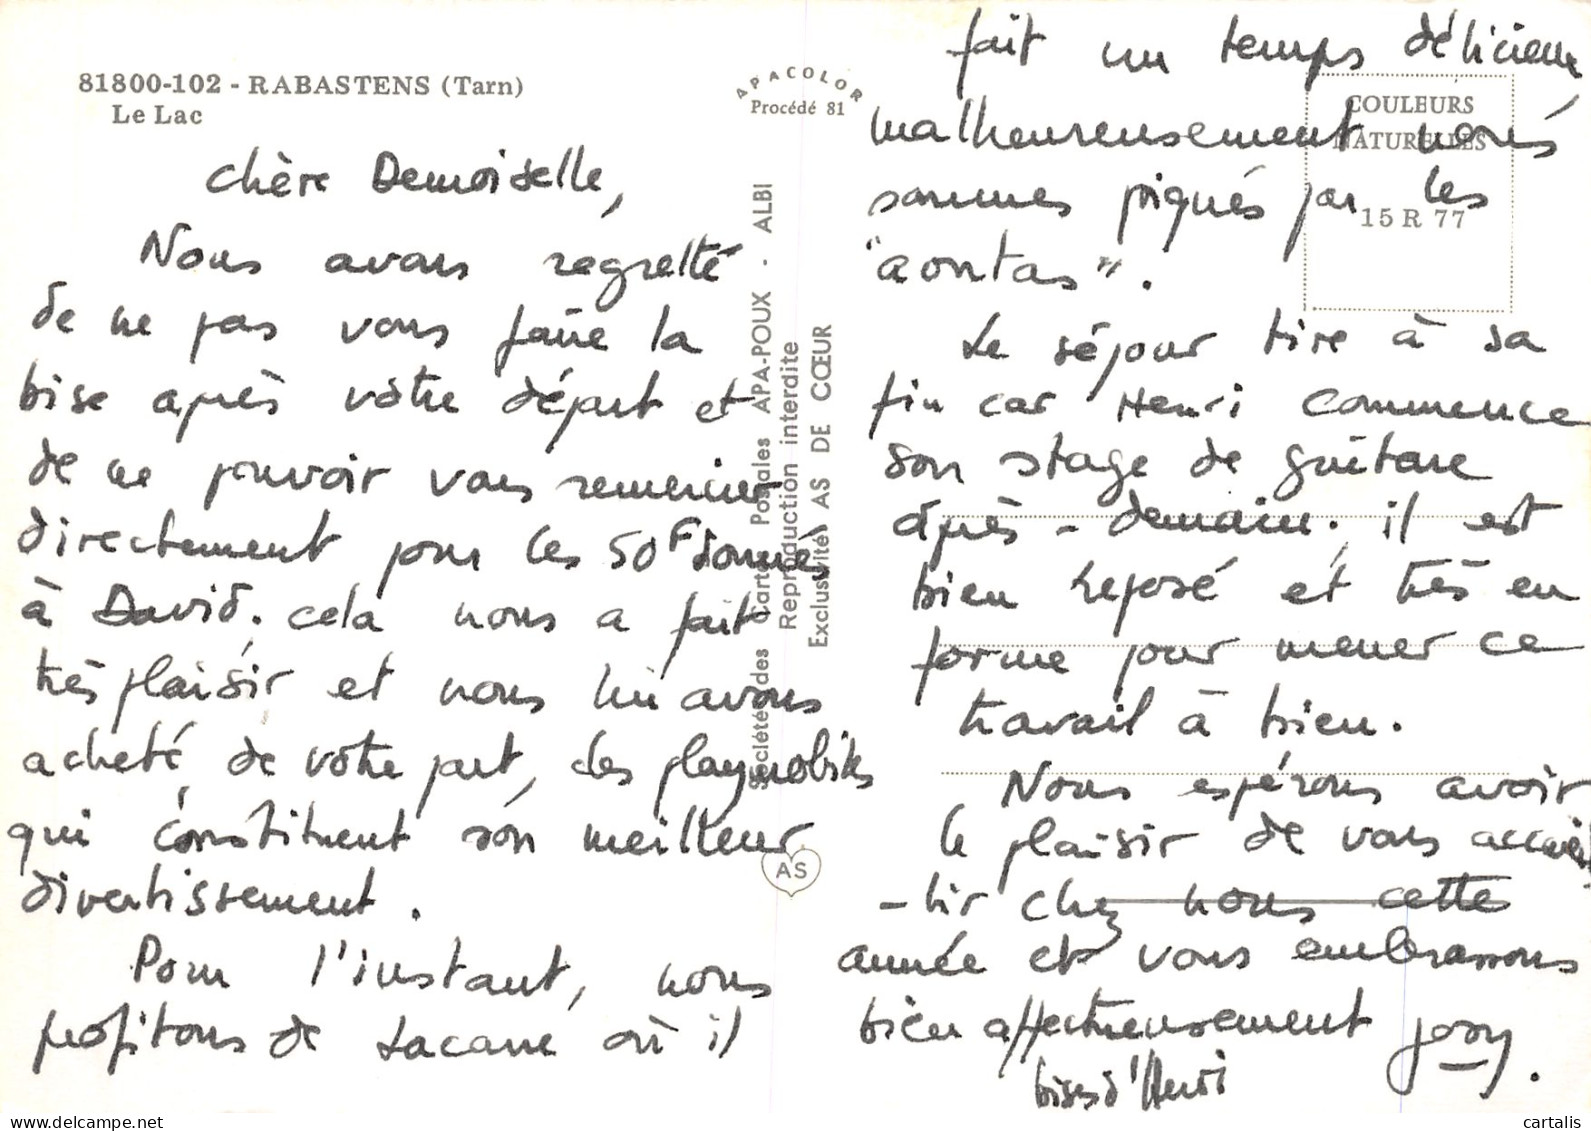 81800-102 - RABASTENS (Tarn)
Le Lac
APACOLOR
Procédé 81
chère Demoiselle,
Nous avons regretté
de ne pas vous faire la
bise après votre départ et
de ne pouvoir vous remercier
directement pour les 50F donnés
à David. cela nous a fait
très plaisir et nous lui avons
acheté, de votre part, des playmobiles
qui constituent son meilleur
divertissement.
Pour l'instant, nous
profitons de Lacave où il
Sociétés des Cartes Postales APA-POUX - ALBI
Reproduction interdite
Exclusivités AS DE CŒUR
AS
fait un temps délicieux,
malheureusement nous
sommes piqués par les
"aoutas".
Le séjour tire à sa
fin car Henri commence
son stage de guitare
après-demain. il est
bien reposé et très en
forme pour mener ce
travail à bien.
Nous espérons avoir
le plaisir de vous accueil
-lir chez nous cette
année et vous embrassons
bien affectueusement Josy.
bises d'Henri
COULEURS
NATURELLES
15 R 77
delcampe.net
cartalis